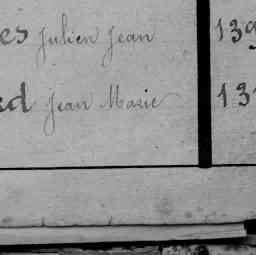 es Julien Jean 139
rd Jean Marie 13